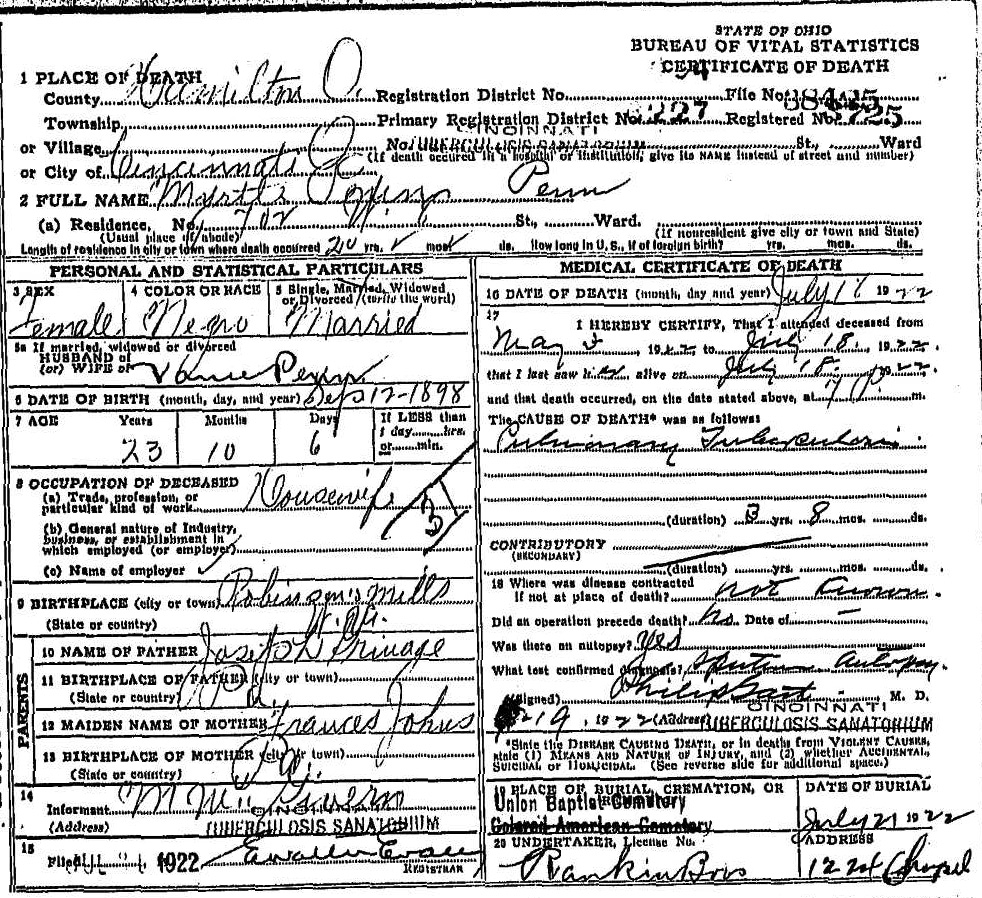 STATE OF OHIO
BUREAU OF VITAL STATISTICS
CERTIFICATE OF DEATH
1 PLACE OF DEATH
County Hamilton O. Registration District No. File No.
Township Primary Registration District No. 227 Registered No. 725
or Village No. CINCINNATI TUBERCULOSIS SANATORIUM St., Ward
(If death occured in a hospital or institution, give its NAME instead of street and number)
or City of Cincinnati O.
2 FULL NAME Myrtle Penn
(a) Residence, No. 702 St., Ward.
(Usual place of abode) (If nonresident give city or town and State)
Length of residence in city or town where death occurred 20 yrs. mos. ds. How long in U. S., if of foreign birth? yrs. mos. ds.
PERSONAL AND STATISTICAL PARTICULARS
3 SEX 4 COLOR OR RACE 5 Single, Married, Widowed
or Divorced (write the word)
Female Negro Married
5a If married, widowed or divorced
HUSBAND of
(or) WIFE of Vance Penn
6 DATE OF BIRTH (month, day, and year) Sep 12-1898
7 AGE Years Months Days If LESS than
1 day hrs.
or min.
23 10 6
8 OCCUPATION OF DECEASED
(a) Trade, profession, or
particular kind of work Housewife
31
(b) General nature of Industry,
business, or establishment in
which employed (or employer)
(c) Name of employer
9 BIRTHPLACE (city or town) Robinson's Mills
(State or country)
PARENTS
10 NAME OF FATHER Joseph Grinage
11 BIRTHPLACE OF FATHER (city or town)
(State or country) Pa.
12 MAIDEN NAME OF MOTHER Frances Johns
13 BIRTHPLACE OF MOTHER (city or town)
(State or country)
14
Informant
(Address) CINCINNATI
TUBERCULOSIS SANATORIUM
15
Filed JUL 21 1922
REGISTRAR
MEDICAL CERTIFICATE OF DEATH
16 DATE OF DEATH (month, day and year) July 18 1922
17
I HEREBY CERTIFY, That I attended deceased from
May 1922 to July 18, 1922
that I last saw her alive on July 18 1922
and that death occurred, on the date stated above, at 7 P. m.
The CAUSE OF DEATH* was as follows:
Pulmonary Tuberculosis
(duration) 3 yrs. 8 mos. ds.
CONTRIBUTORY
(SECONDARY)
(duration) yrs. mos. ds.
18 Where was disease contracted
if not at place of death? not known.
Did an operation precede death? No. Date of —
Was there an autopsy? Yes
What test confirmed diagnosis? Sputum autopsy.
(Signed) Philip M. D.
19, 1922 (Address) CINCINNATI
TUBERCULOSIS SANATORIUM
*State the DISEASE CAUSING DEATH, or in deaths from VIOLENT CAUSES,
state (1) MEANS AND NATURE OF INJURY, and (2) whether ACCIDENTAL,
SUICIDAL or HOMICIDAL. (See reverse side for additional space.)
19 PLACE OF BURIAL, CREMATION, OR DATE OF BURIAL
Union Baptist Cemetery
Colored American Cemetery
July 21 1922
20 UNDERTAKER, License No. ADDRESS
Rankin Bros 1224 Chapel